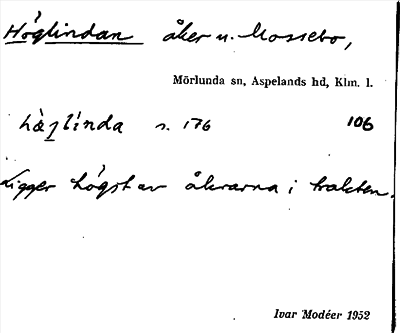 Höglindan åker u. Mossebo,
Mörlunda sn, Aspelands hd, Klm. l.
hæ̀g̱lìnda s. 176 106
Ligger högst av åkrarna i trakten.
Ivar Modéer 1952